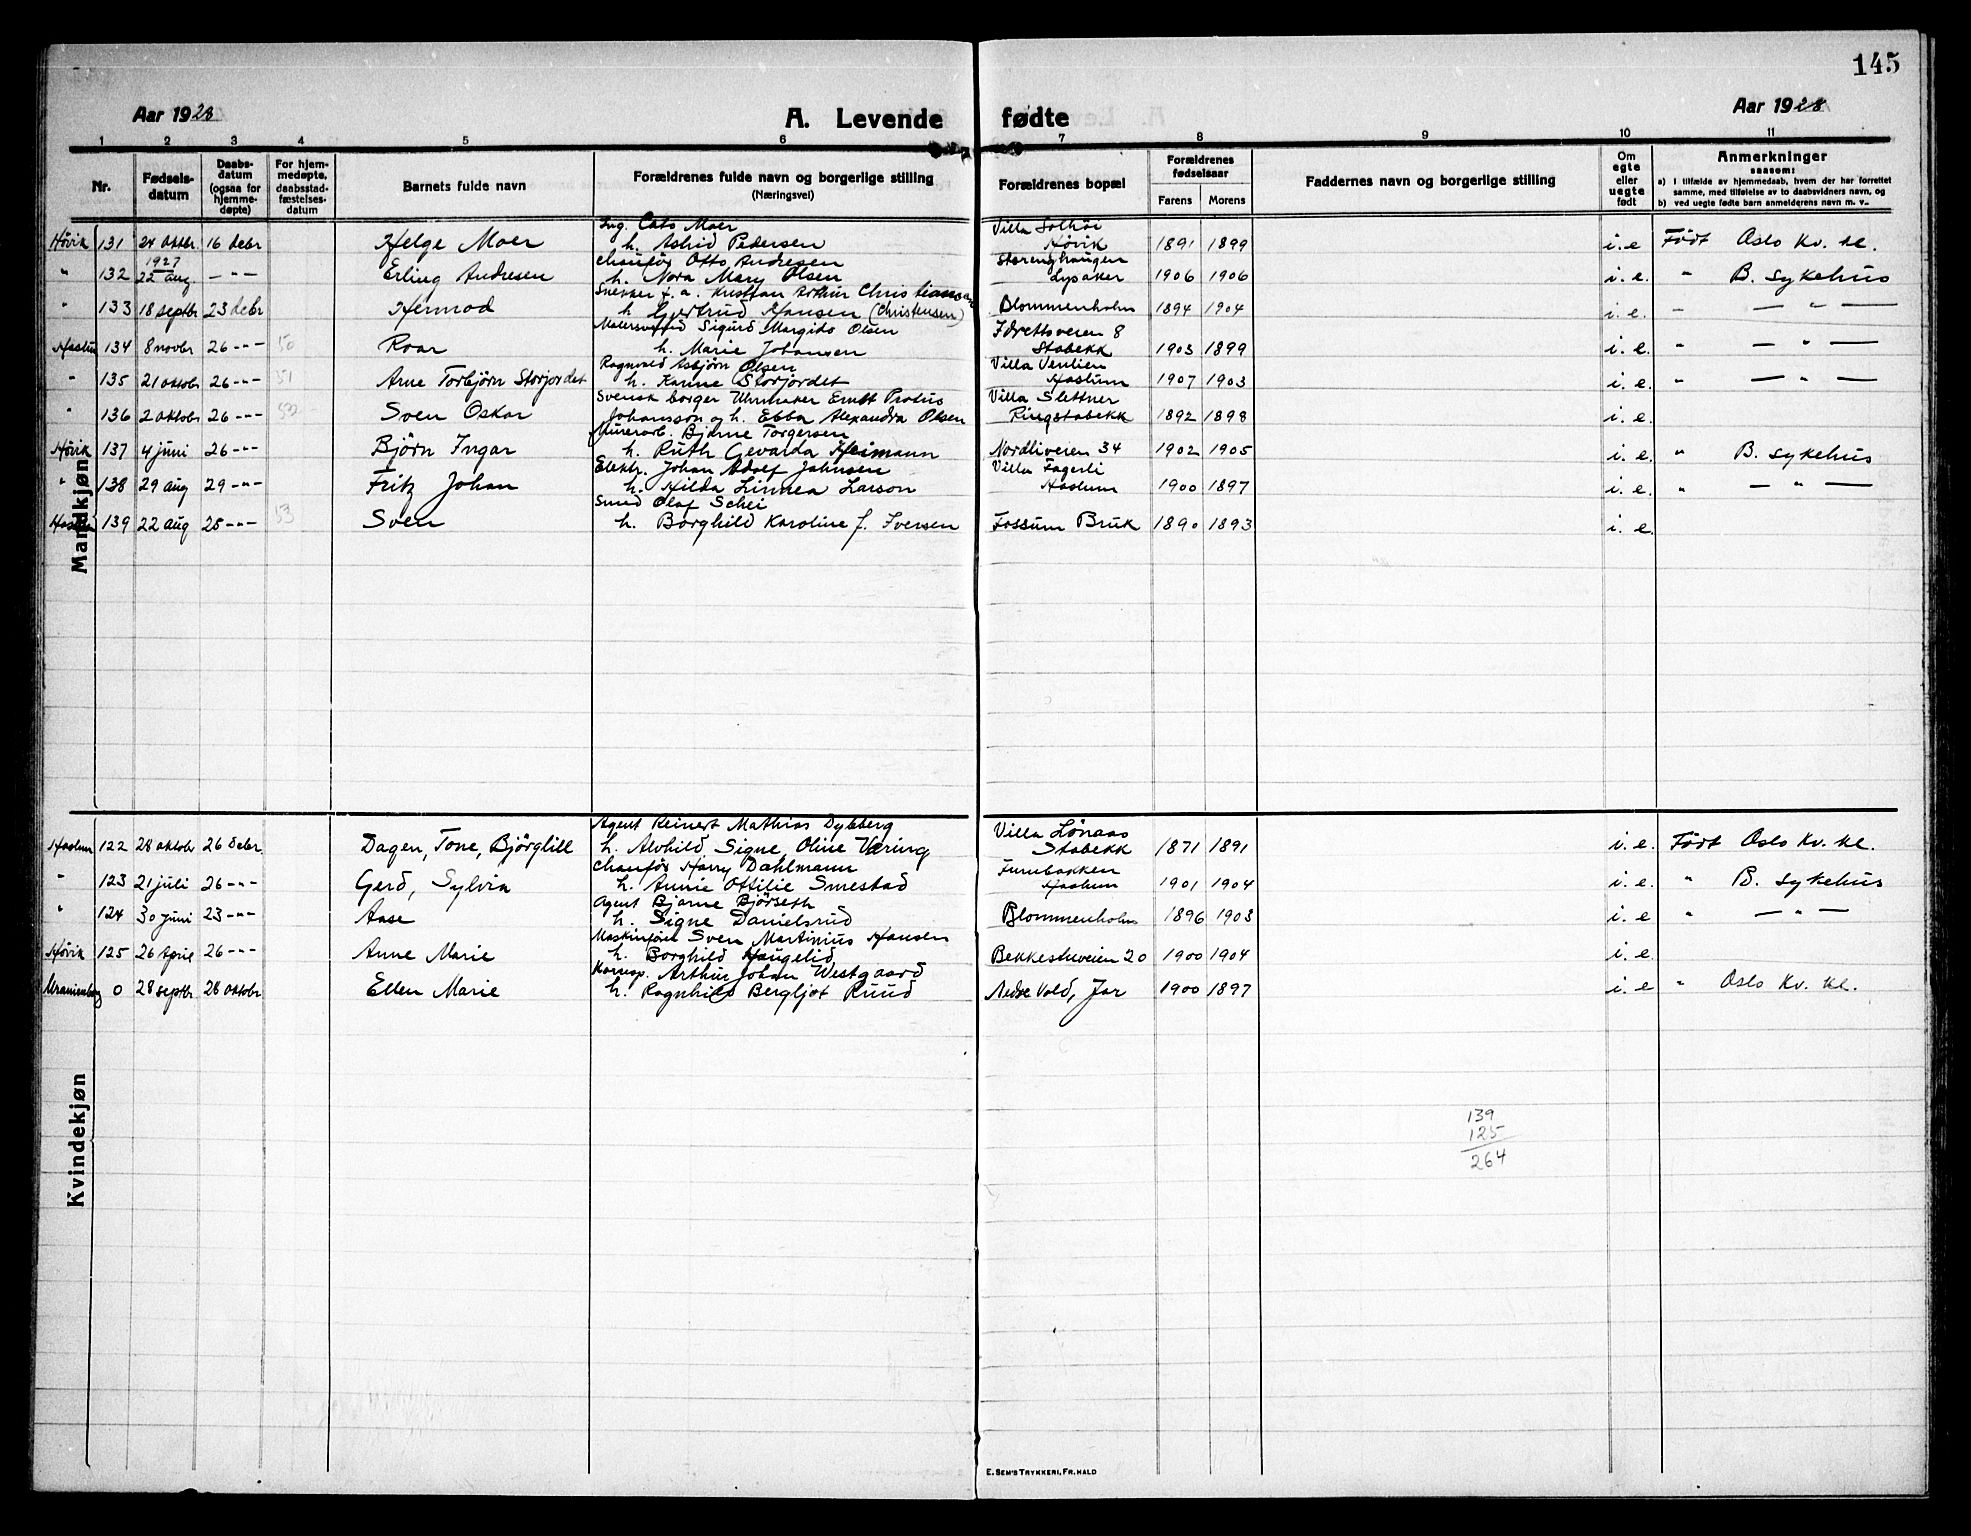 145
Aar 1928 A. Levende fødte Aar 1928
1 2 3 4 5 6 7 8 9 10 11
Nr. Fødsels-datum Daabs-datum (ogsaa for hjemme-døpte) For hjem-medøpte, daabsstad-fæstelses-datum Barnets fulde navn Forældrenes fulde navn og borgerlige stilling (Næringsvei) Forældrenes bopæl Forældrenes fødselsaar Farens Morens Faddernes navn og borgerlige stilling Om egte eller uegte født Anmerkninger saasom: a) I tilfælde av hjemmedaab, hvem der har forrettet samme, med tilføielse av to daabsvidners navn, og b) ved uegte fødte barn anmelderens navn m. v.
Mandkjøn
Ing. Cato Moer Villa Solhöi
Høvik 131 24 oktbr. 16 debr Helge Moer h. Astrid Pedersen Høvik 1891 1899 i. e Født Oslo Kv. kl.
1927 Chaufför Otto Andresen Storenghaugen
" 132 22 aug. — " — Erling Andresen h. Nora Mary Olsen Lysaker 1906 1906 i. e. " B. Sykehus
Snekker f. a. Kristian Arthur Christiansen
" 133 18 septbr 23 debr Hermod h. Gjertrud Hansen (Christensen) Blommenholm 1894 1904 i. e. " — " —
Malersvend Sigurd Margido Olsen Idrettsveien 8
Haslum 134 8 novbr 26 -"- 50 Roar h. Marie Johansen Stabekk 1903 1899 i. e. " — " —
Ragnvald Asbjörn Olsen Villa Venlien
" 135 21 oktobr 26 -"- 51 Arne Torbjörn Storjordet h. Karine Storjordet Haslum 1907 1903 i. e. " — " —
Svensk borger Uhrmaker Ernst Protus Villa Slettner
" 136 2 oktobr 26 -"- 52 Sven Oskar Johansson og h. Ebba Alexandra Olsen Ringstabekk 1892 1898 i. e.
Murerarb. Bjarne Torgersen
Høvik 137 4 juni 26 -"- Björn Ingar h. Ruth Gevalda Heimann Nordliveien 34 1902 1905 i. e. " B. Sykehus
Elektr. Johan Adolf Johnsen Villa Fagerli
" 138 29 aug 29 -"- Fritz Johan h. Hilda Linnea Larson Haslum 1900 1897 i. e. " — " —
Smed Olaf Schei
Haslum 139 22 aug 25 -"- 53 Sven h. Borghild Karoline f. Iversen Fossum Bruk 1890 1893 i. e.
Kvindekjøn
Agent Reinert Mathias Dybberg Villa Lönaas
Haslum 122 28 oktobr 26 debr. Dagen, Tone, Björghill h. Alvhild Signe Oline Væring Stabekk 1871 1891 i. e. Født Oslo Kv. kl.
Chaufför Harry Dahlmann Furubakken
" 123 21 juli 26 -"- Gerd, Sylvia h. Annie Ottilie Smestad Haslum 1901 1904 i. e. " B. Sykehus
Agent Bjarne Björseth
" 124 30 juni 23 -"- Aase h. Signe Danielsrud Blommenholm 1896 1903 i. e " — " —
Maskinför Sven Martinius Hansen
Høvik 125 26 April 26 -"- Anne Marie h. Borghild Haugelid Bekkestuveien 20 1900 1904 i. e.
Korresp. Arthur Johan Westgaard
Uranienborg 0 28 septbr 28 oktobr Ellen Marie h. Ragnhild Bergljot Ruud Nedre Vold, Jar 1900 1897 i. e " Oslo Kv. kl.
139
125
264
E. Sem's Trykkeri, Fr.hald